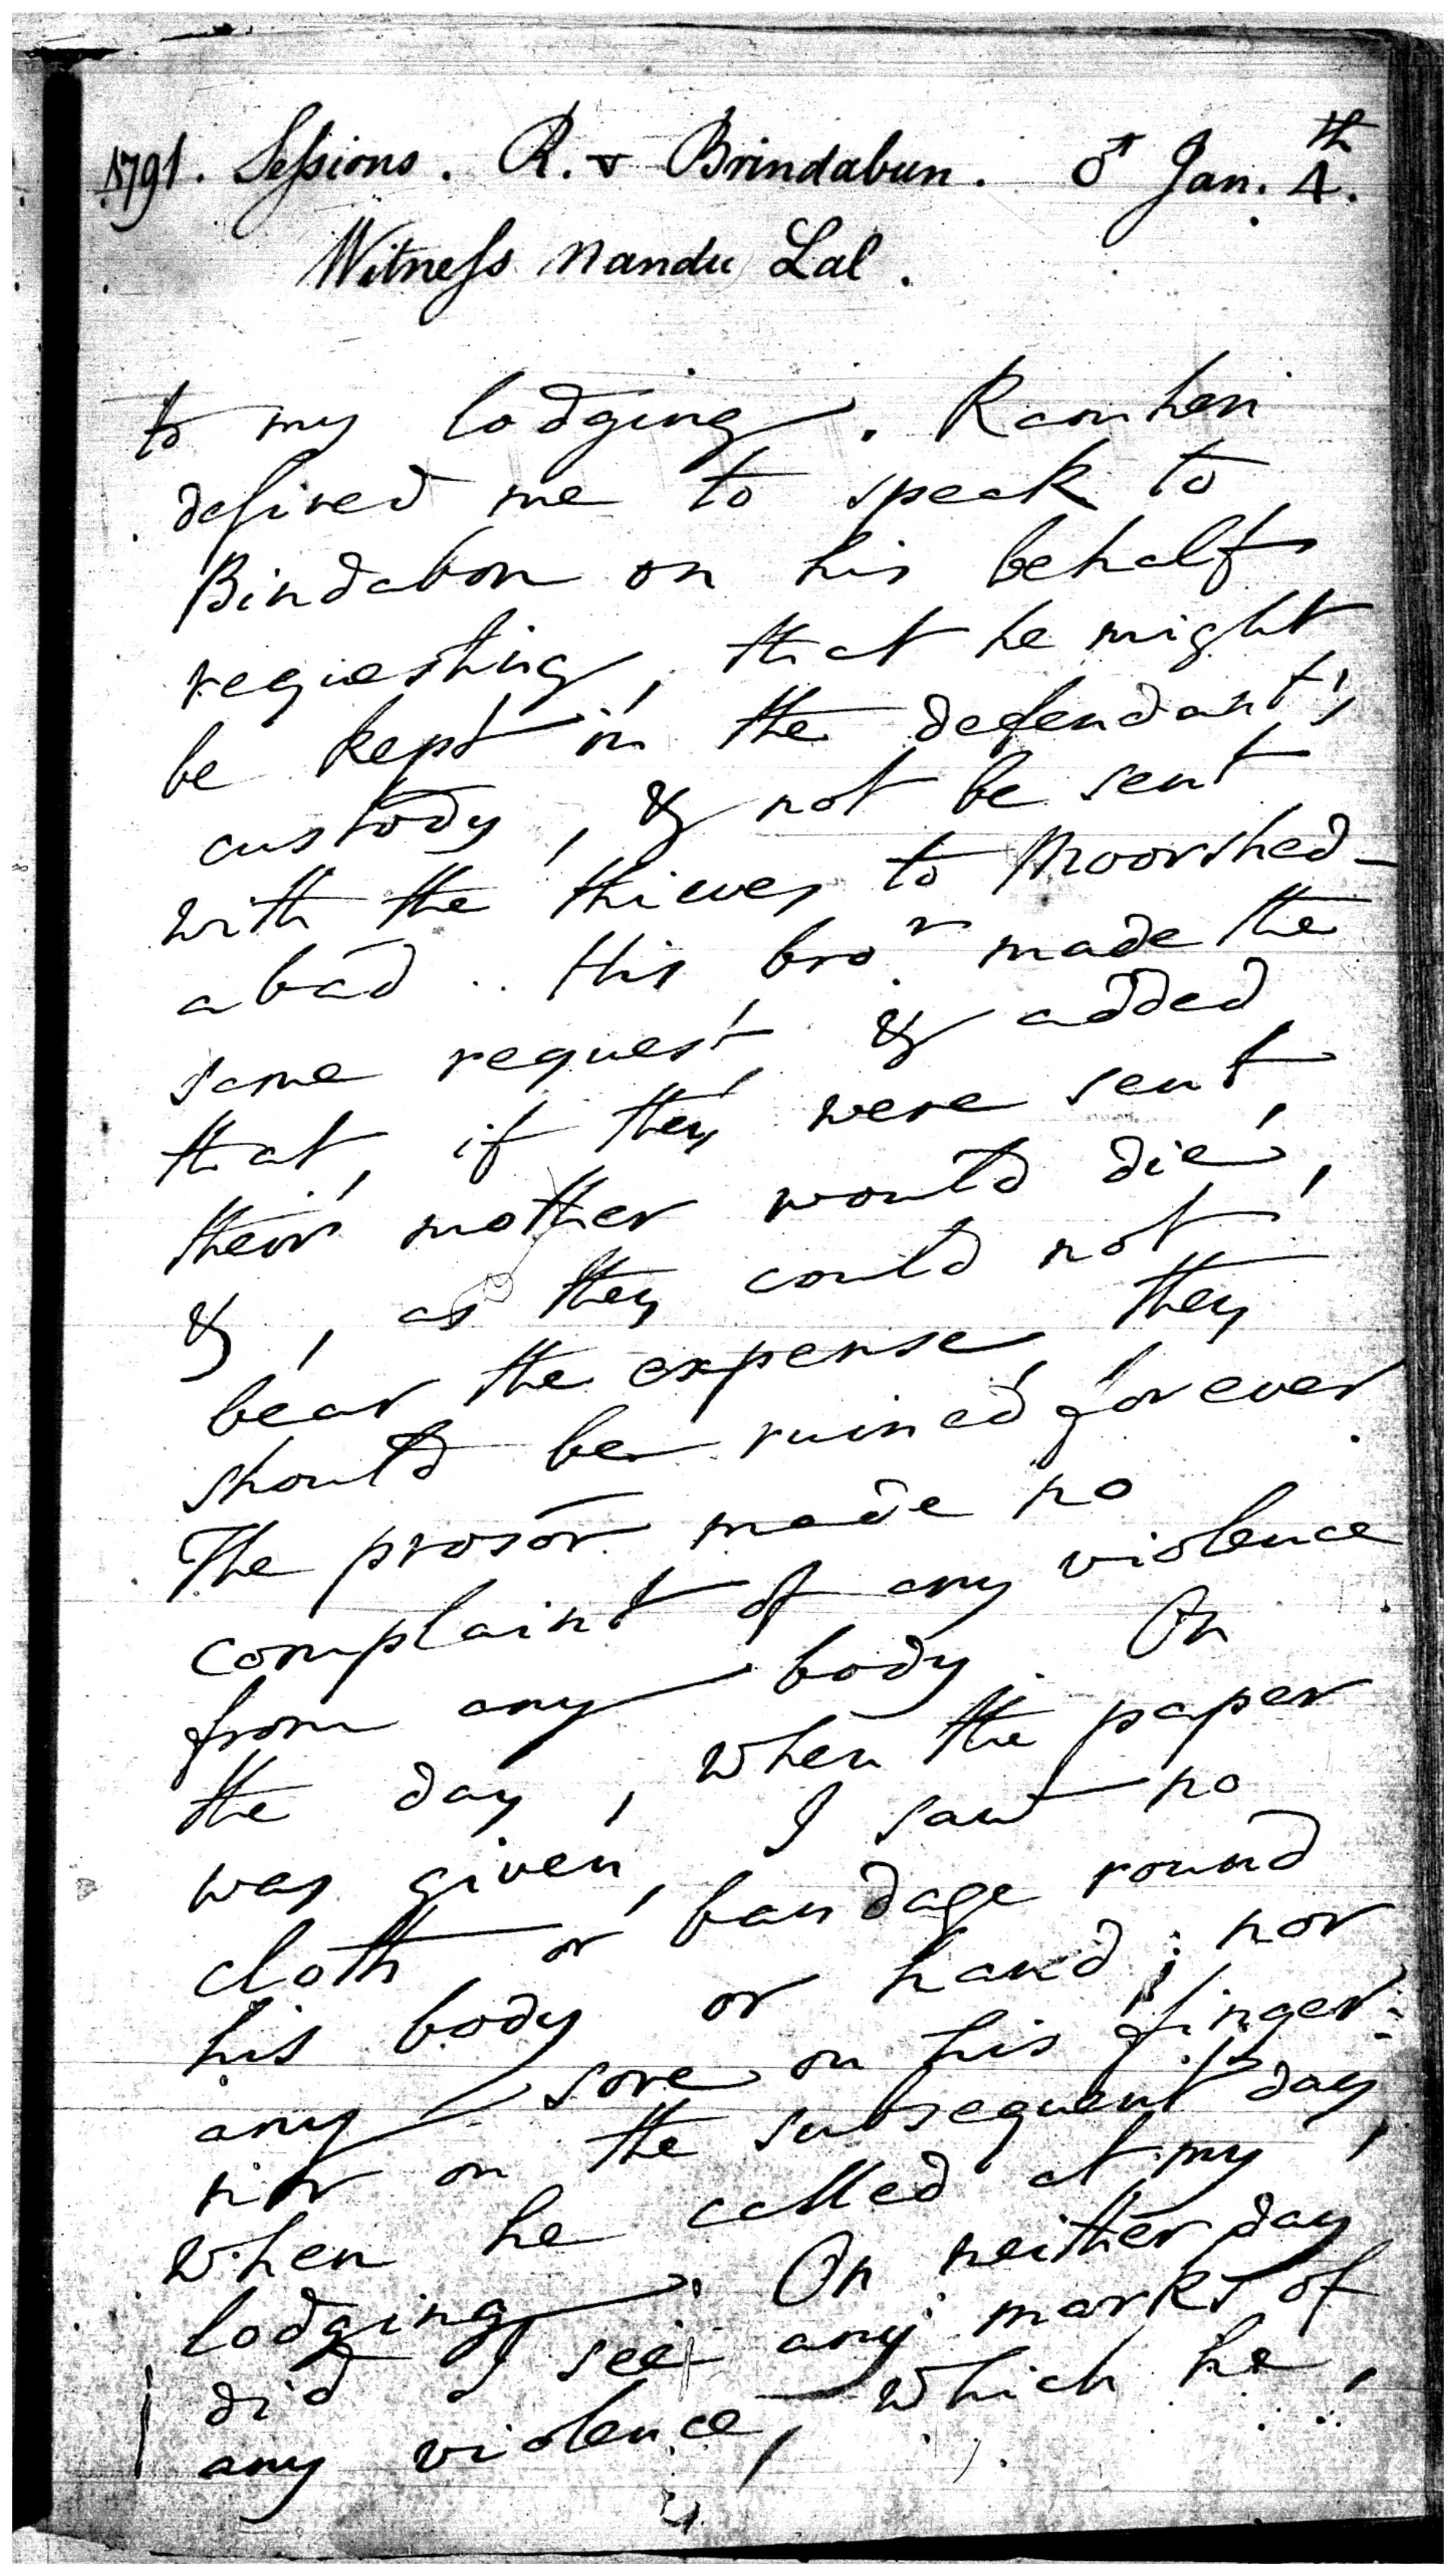 1791. Seſsions. R. v Brindabun. ♂ Jan. 4.th
Witneſs Nandu Lal.
to my lodging. Ramheri
deſired me to speak to
Bindabon on his behalf
requesting, that he might
be kept in the defendant's
custody, & not be sent
with the thieves to Moorshed-
abad.. His bro.r made the
same request & added
that, if they were sent,
their mother would die,
&, as they could not
bear the expense, they
should be ruined for ever.
The prosōr made no
complaint of any violence
from any body. On
the day, when the paper
was given, I saw no
cloth or bandage round
his body or hand; nor
any sore on his finger:
nor on the subsequent day,
when he called at my
lodging. On neither day
did I see any marks of
any violence, which he,